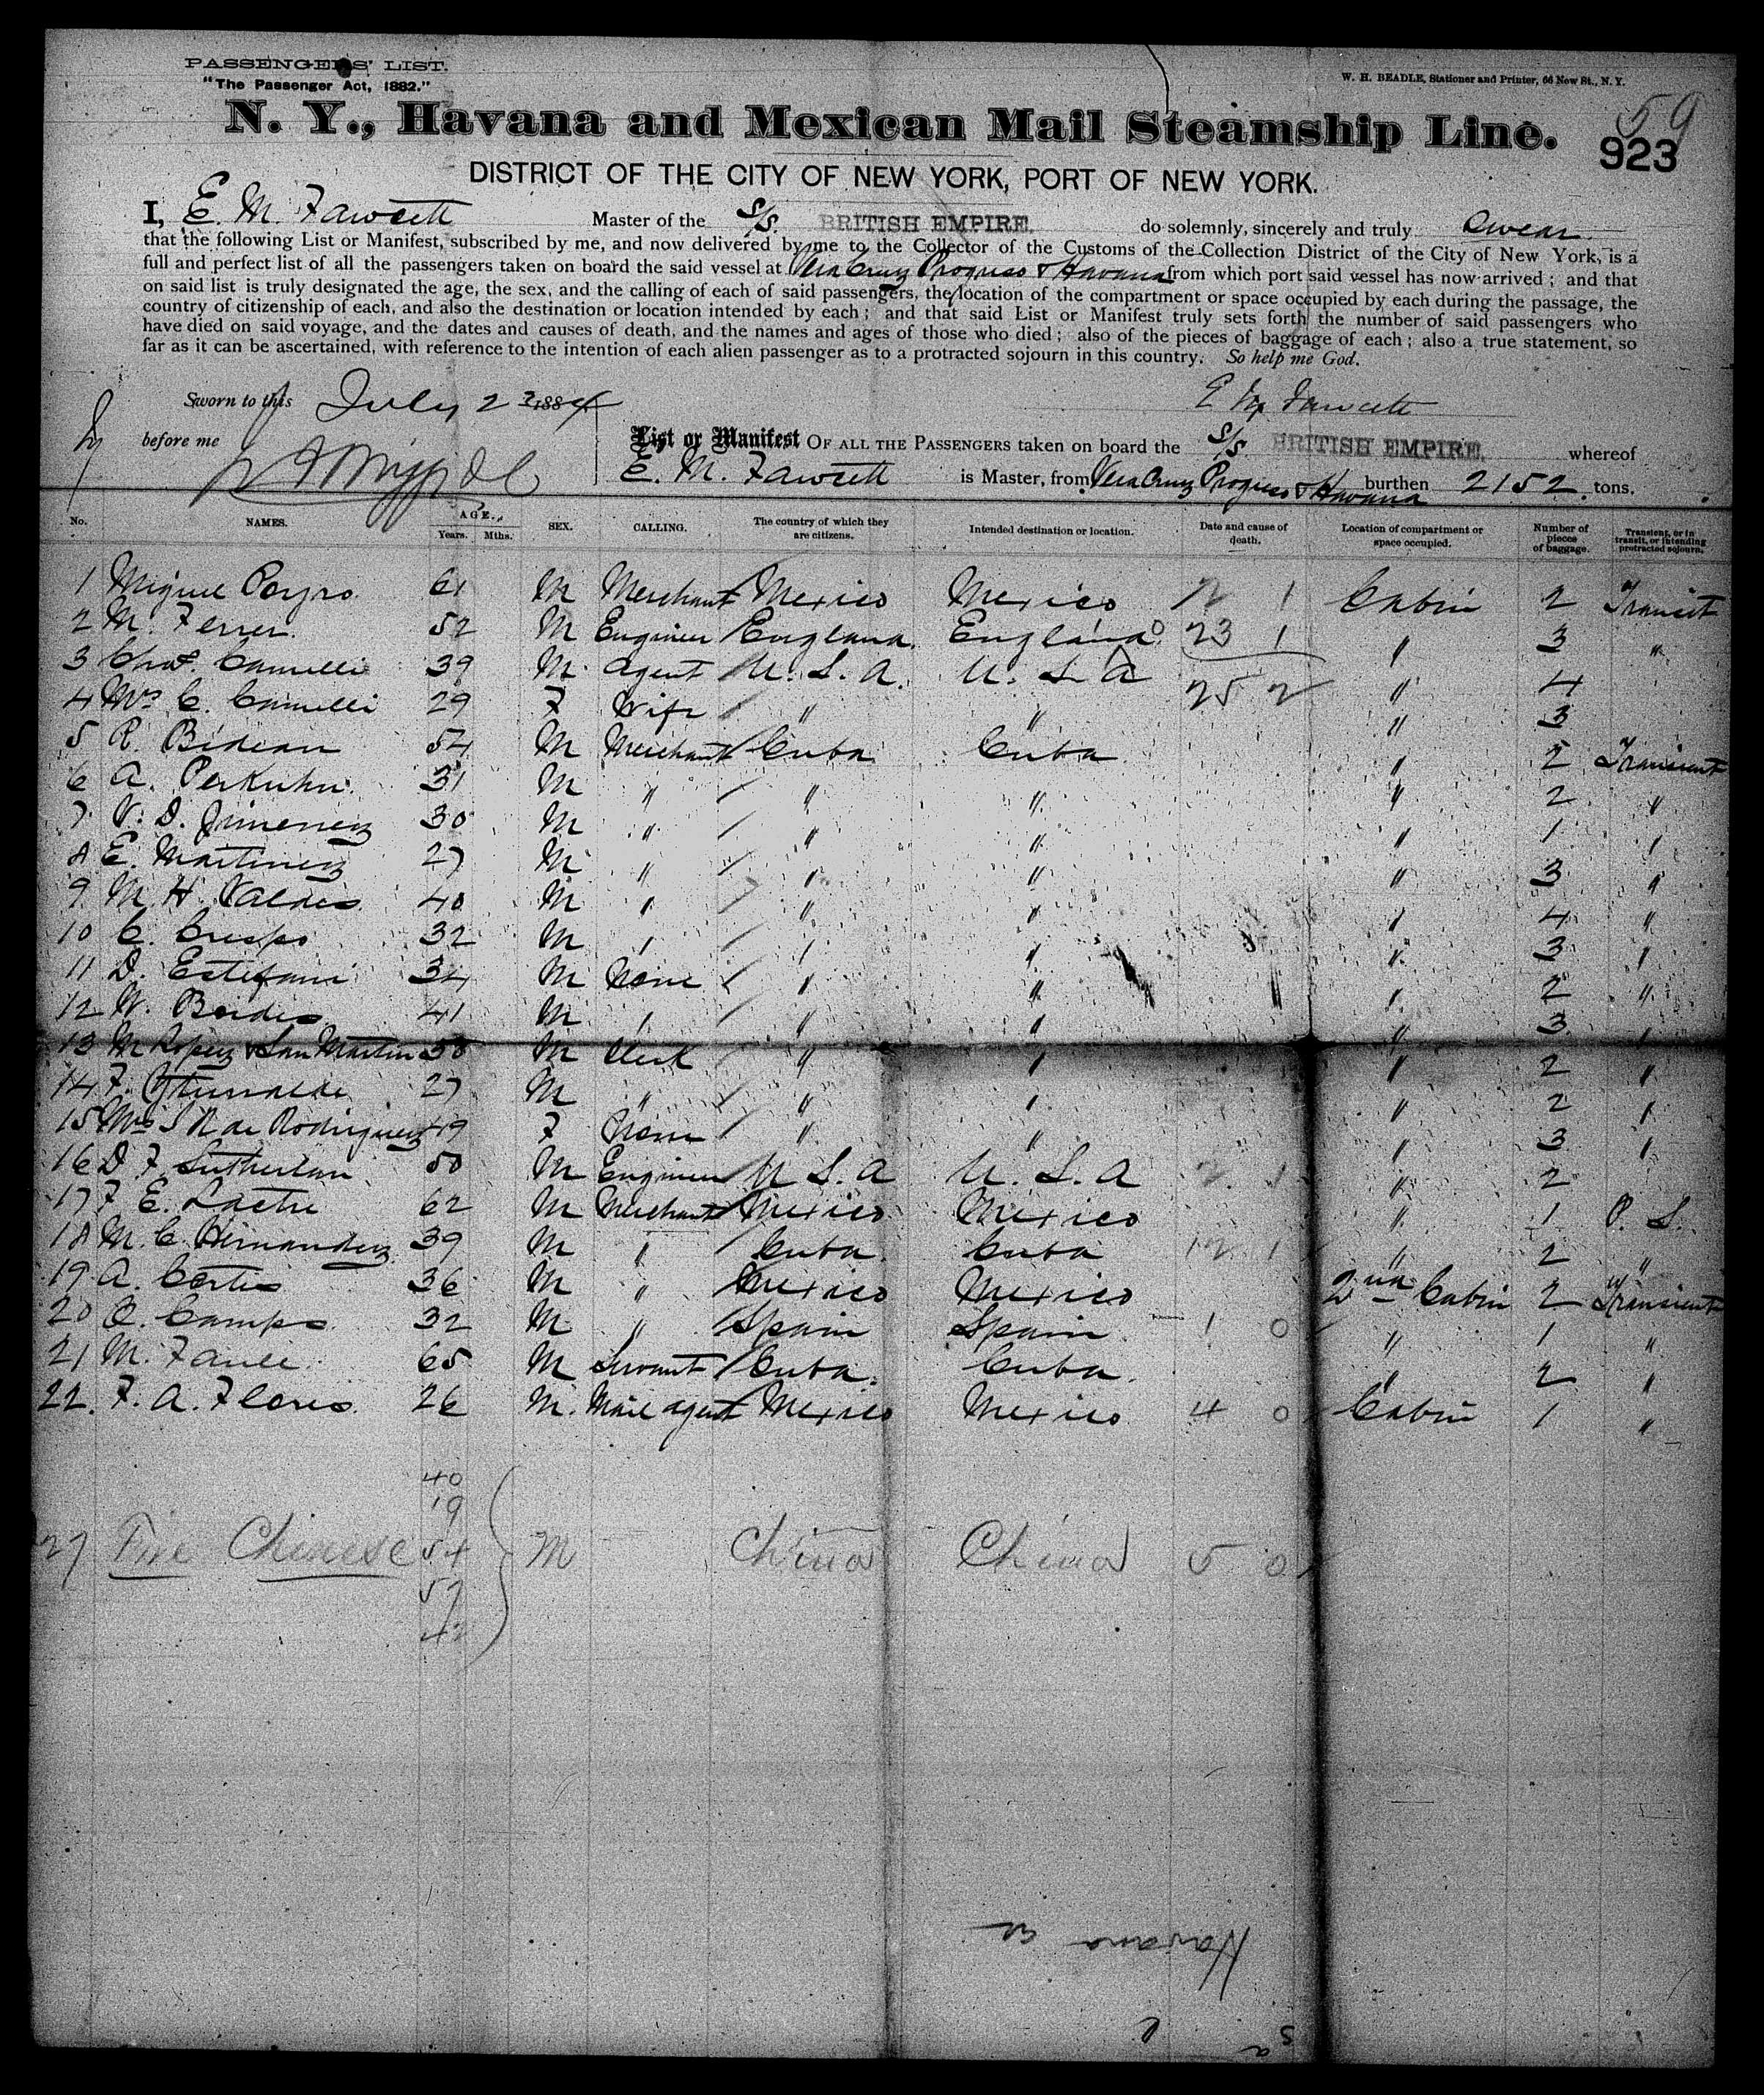 PASSENGERS' LIST.
"The Passenger Act, 1882."
W. H. BEADLE, Stationer and Printer, 66 New St., N. Y.
59
N. Y., Havana and Mexican Mail Steamship Line.
923
DISTRICT OF THE CITY OF NEW YORK, PORT OF NEW YORK.
I, E. M. Fawcett Master of the S/S. BRITISH EMPIRE. do solemnly, sincerely and truly swear
that the following List or Manifest, subscribed by me, and now delivered by me to the Collector of the Customs of the Collection District of the City of New York, is a
full and perfect list of all the passengers taken on board the said vessel at Vera Cruz Progreso & Havana from which port said vessel has now arrived ; and that
on said list is truly designated the age, the sex, and the calling of each of said passengers, the location of the compartment or space occupied by each during the passage, the
country of citizenship of each, and also the destination or location intended by each ; and that said List or Manifest truly sets forth the number of said passengers who
have died on said voyage, and the dates and causes of death, and the names and ages of those who died ; also of the pieces of baggage of each ; also a true statement, so
far as it can be ascertained, with reference to the intention of each alien passenger as to a protracted sojourn in this country. So help me God.
Sworn to this July 23 1884 E M Fawcett
before me
List or Manifest OF ALL THE PASSENGERS taken on board the S/S BRITISH EMPIRE. whereof
E. M. Fawcett is Master, from Vera Cruz Progreso & Havana burthen 2152 tons.
No. NAMES. AGE. Years. Mths. SEX. CALLING. The country of which they are citizens. Intended destination or location. Date and cause of death. Location of compartment or space occupied. Number of pieces of baggage. Transient, or in transit, or intending protracted sojourn.
1 Miguel 61 M Merchant Mexico Mexico 2 1 Cabin 2 Transit
2 M. Ferrer. 52 M Engineer England England 23 1 " 3 "
3 Chas. Camelli 39 M Agent U. S. A. U. S. A " 4
4 Mrs C. Camelli 29 F Wife " " 25 2 " 3
5 R. Bidean 54 M Merchant Cuba Cuba " 2 Transient
6 A. Perkuhn 31 M " " " " 2 "
7 V. D. Jimenez 30 M " " " " 1 "
8 E. Martinez 27 M " " " " 3 "
9 M. H. Valdes 40 M " " " " 4 "
10 C. Crespo 32 M " " " " 3 "
11 D. Estefani 34 M None " " " 2 "
12 N. 41 M " " " " 3 "
13 M Lopez & San Martin 58 M Clerk " " " 2 "
14 F. 27 M " " " " 2 "
15 Mrs S R de Rodriguez 49 F None " " " 3 "
16 D. F. Sutherlan 50 M Engineer U S. A U. S. A 2 1 " 2
17 F. E. Lastre 62 M Merchant Mexico Mexico " 1 P. S.
18 M. C. Hernandez 39 M " Cuba Cuba 12 1 " 2 "
19 A. Cortis 36 M " Mexico Mexico 2nd Cabin 2 Transient
20 C. Camps 32 M " Spain Spain 1 0 " 1 "
21 M. 65 M Servant Cuba Cuba. " 2 "
22. F. A. Flores 26 M. Mail agent Mexico Mexico 4 0 Cabin 1 "
40
19
27 Five Chinese 54 M China China 5 0
57
42
Havana